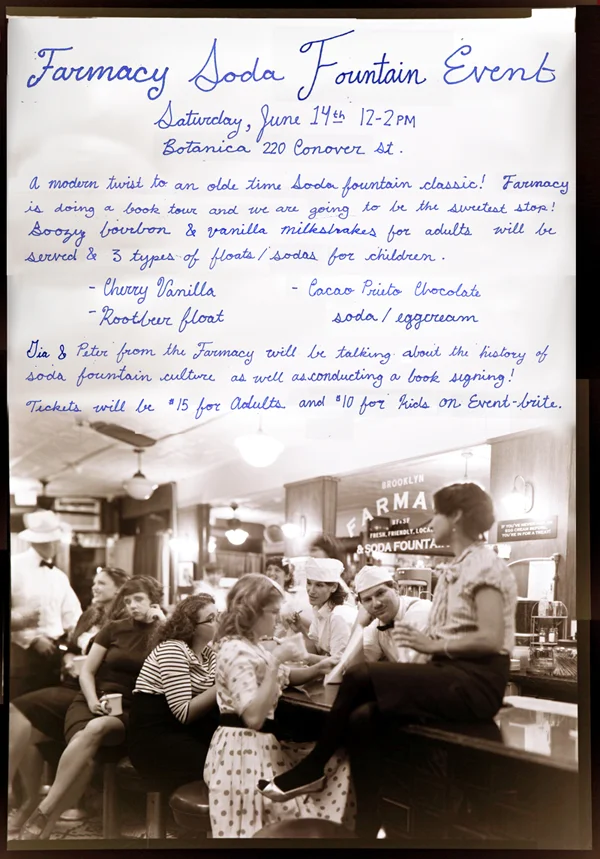 Farmacy Soda Fountain Event
Saturday, June 14th 12-2PM
Botanica 220 Conover St.
A modern twist to an olde time Soda fountain classic! Farmacy
is doing a book tour and we are going to be the sweetest stop!
Boozy bourbon & vanilla milkshakes for adults will be
served & 3 types of floats/sodas for children.
- Cherry Vanilla
- Rootbeer float
- Cacao Prieto Chocolate
soda / eggcream
Gia & Peter from the Farmacy will be talking about the history of
soda fountain culture as well as conducting a book signing!
Tickets will be $15 for Adults and $10 for Kids on Event-brite.
BROOKLYN
FARMA
FRESH, FRIENDLY, LOCA
& SODA FOUNTA